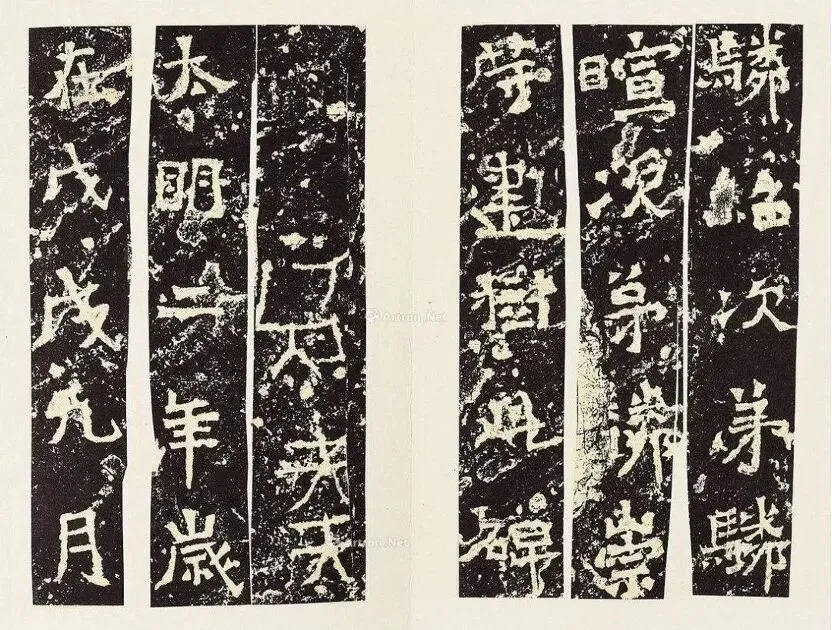 驎紹次弟驎
暄次弟驎崇
等建樹此碑
太明二年歲
在戊戌九月
Artron.Net
Artron.Net